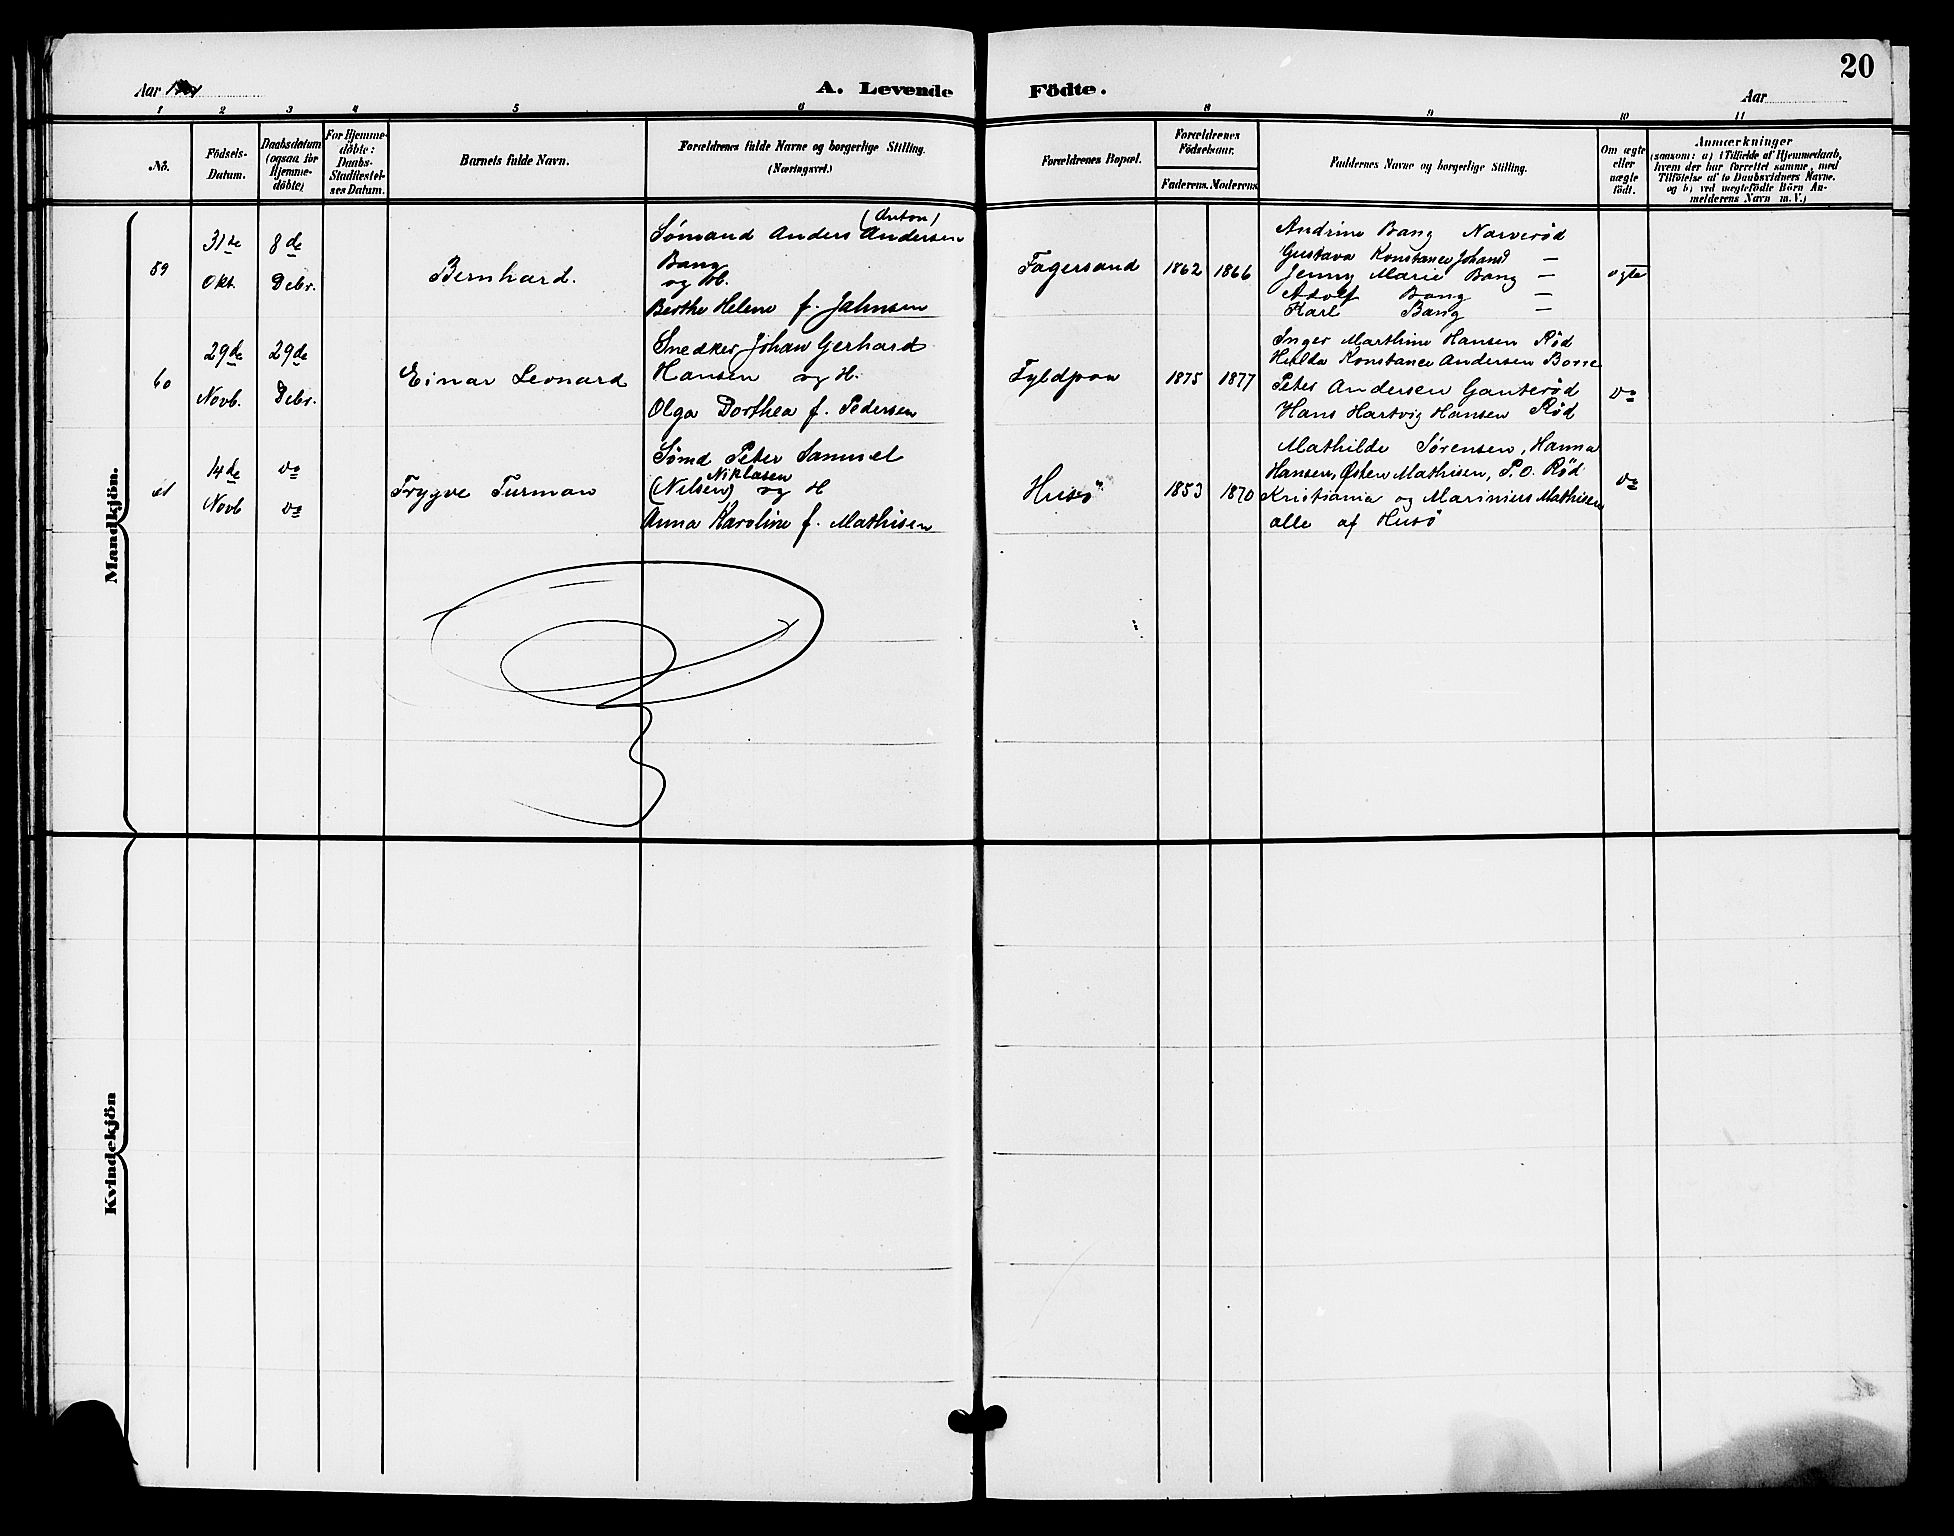 20
Aar
A. Levende Födte.
Aar
1 2 3 4 5 6 8 9 10 11
No.
Födsels-
Datum.
Daabsdatum
(ogsaa for
Hjemme-
döbte)
For Hjemme-
döbte:
Daabs-
Stadfæstel-
ses Datum.
Barnets fulde Navn.
Forældrenes fulde Navne og borgerlige Stilling.
(Næringsvei.)
Forældrenes Bopæl.
Forældrenes
Födselsaar.
Faderens. Moderens.
Faddernes Navne og borgerlige Stilling.
Om ægte
eller
uægte
født.
Anmærkninger
(saasom: a) i Tilfælde af Hjemmedaab,
hvem der har forrettet samme, med
Tilföielse af to Daabsvidners Navne.
og b) ved uægtefödte Börn An-
melderens Navn m. V.)
Mandkjön.
59
31te
Okt.
8de
Debr.
Bernhard.
(Anton)
Sømand Anders Andersen
Bang
og H.
Berthe Helene f. Jahnsen
Fagersand
1862
1866
Andrine Bang Narverød
Gustava Konstance Johans —
Jenny Marie Bang —
Adolf Bang —
Karl Bang —
ægte
60
29de
Novb.
29de
Debr.
Einar Leonard
Snedker Johan Gerhard
Hansen og H.
Olga Dorthea f. Pedersen
Fyldpaa
1875
1877
Inger Marthine Hansen Rød
Hulda Konstance Andersen Borre
Peter Andersen Gauterød
Hans Hartvig Hansen Rød
do
61
14de
Novb
do
do
Trygve Furman
Sømd Peter Samuel
Niklasen
(Nilsen) og H
Anna Karoline f. Mathisen
Husö
1853
1870
Mathilde Sørensen, Hanna
Hansen, Østen Mathisen, P.O. Rød
Kristiania og Marinius Mathisen
alle af Husö
do
Kvindekjön